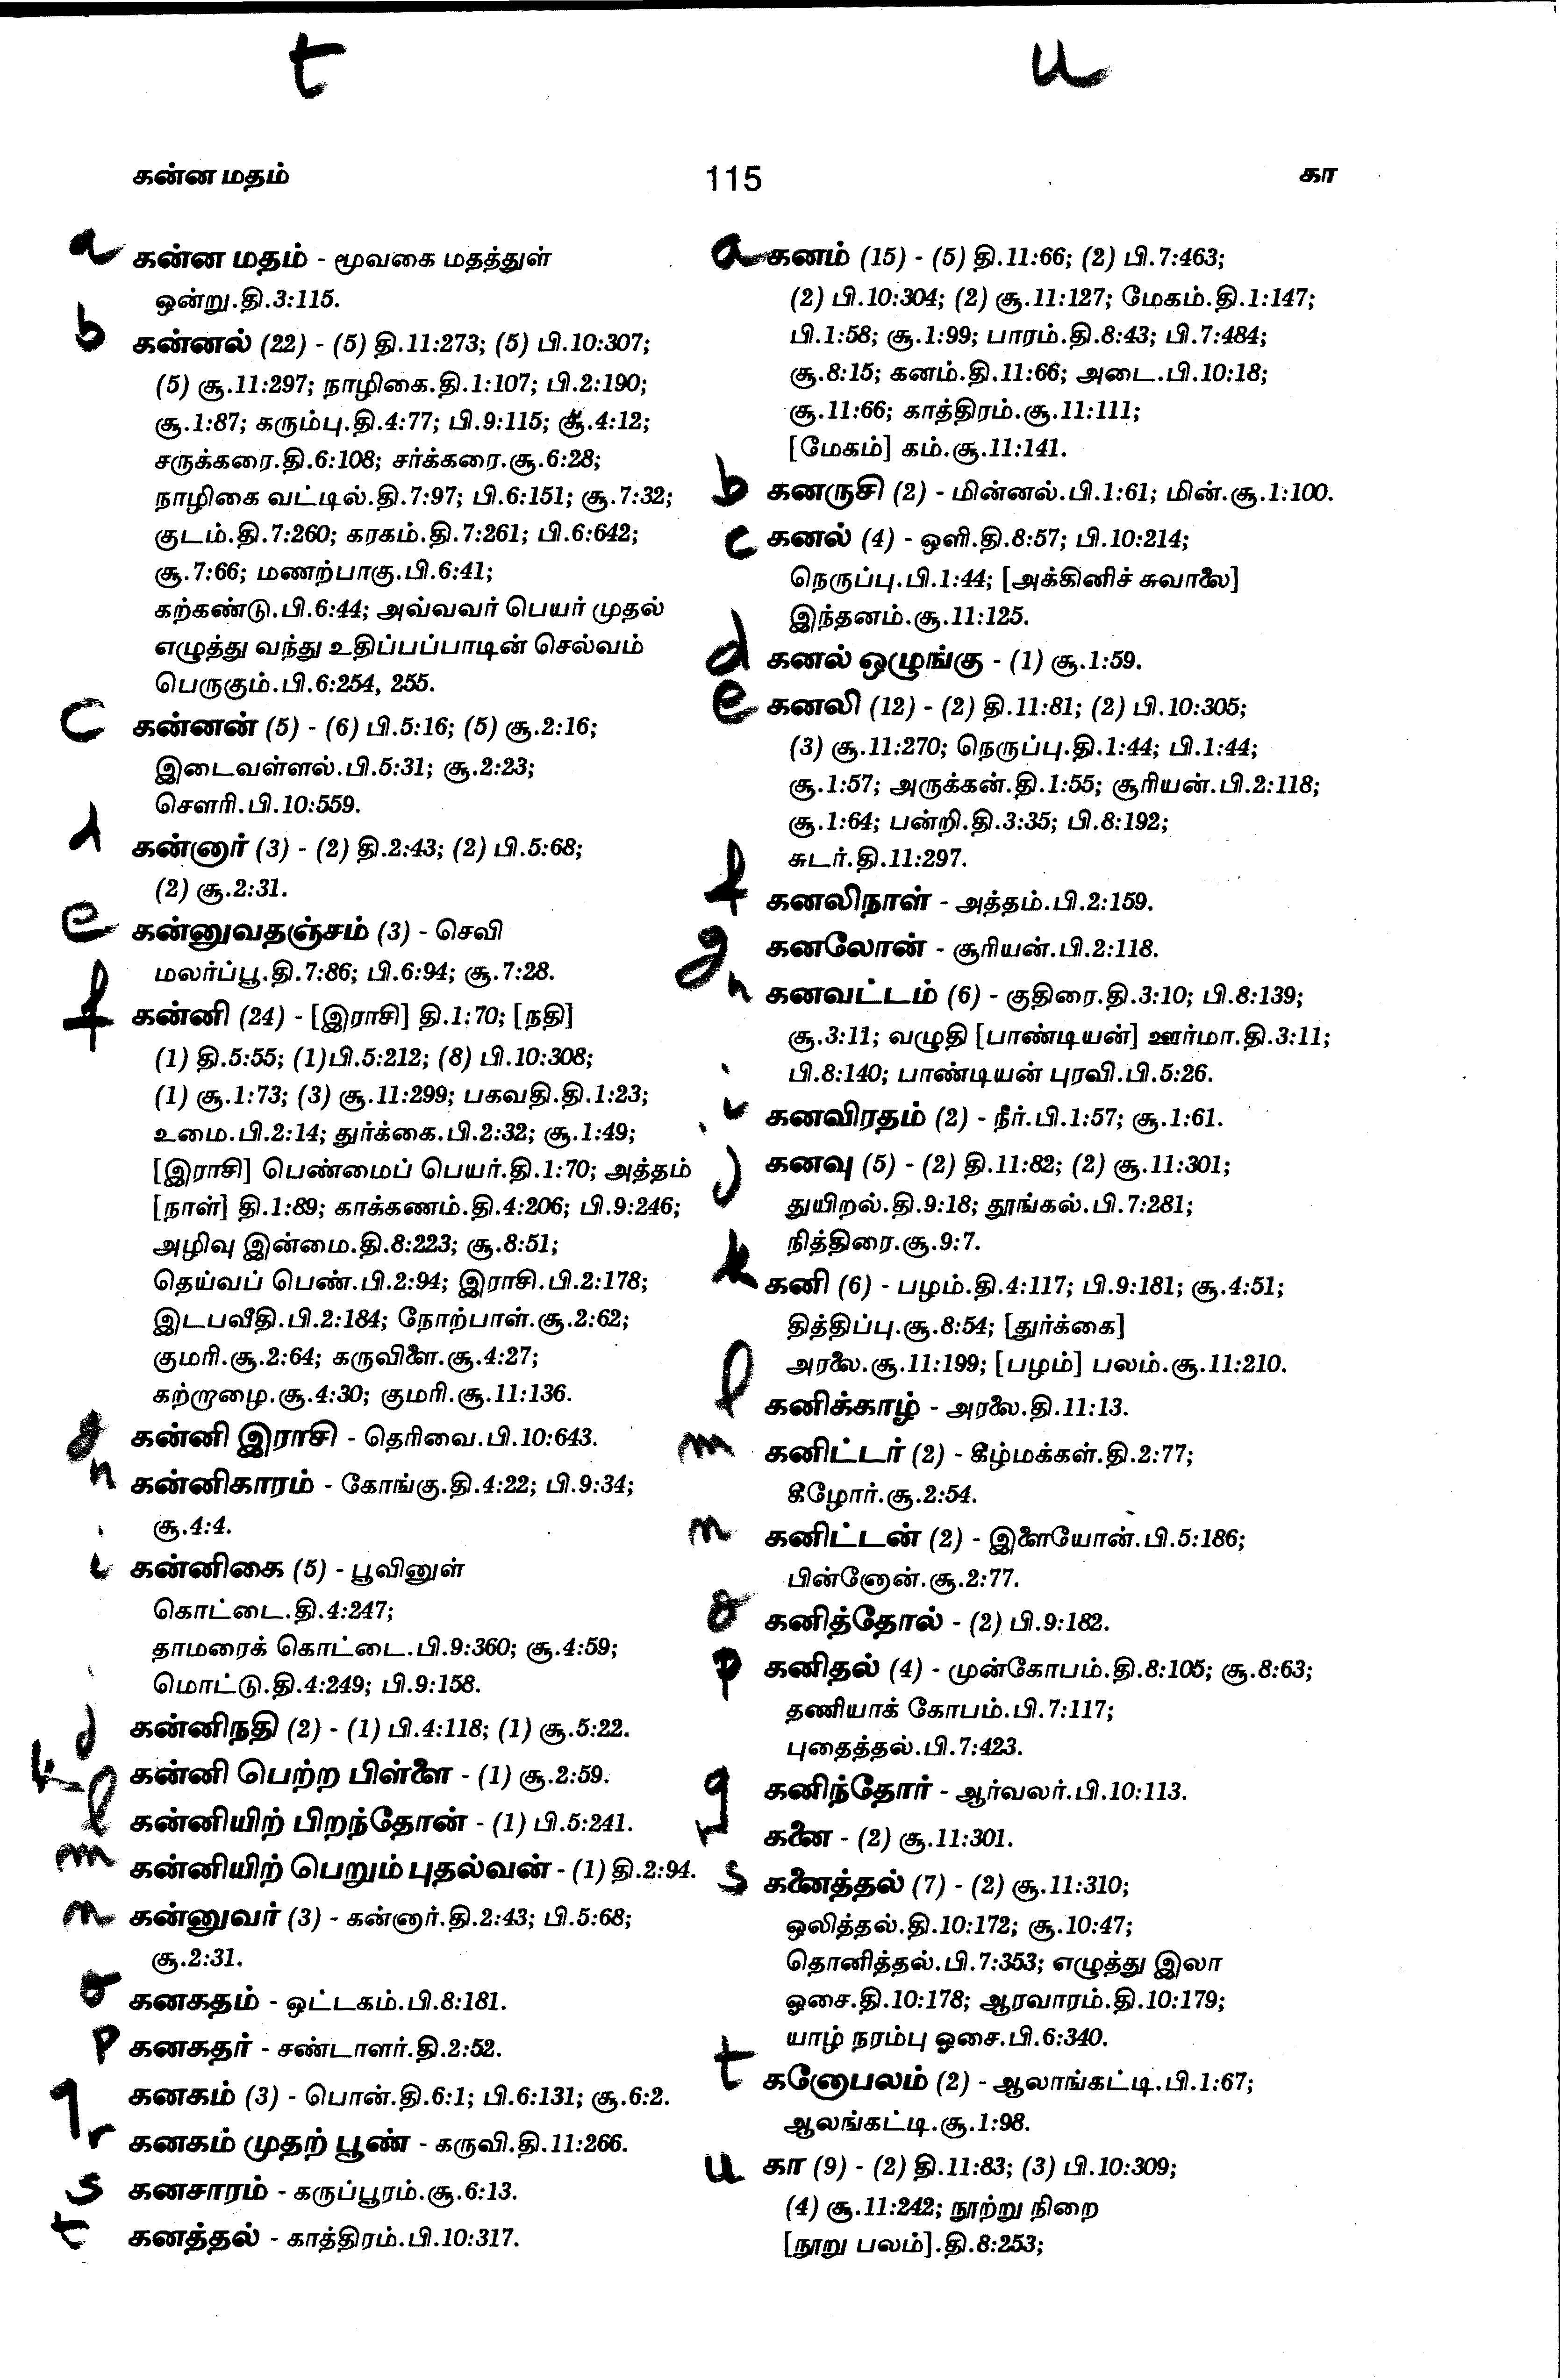 t u
கன்ன மதம் 115 கா
a கன்ன மதம் - மூவகை மதத்துள்
ஒன்று.தி.3:115.
b கன்னல் (22) - (5) தி.11:273; (5) பி.10:307;
(5) சூ.11:297; நாழிகை.தி.1:107; பி.2:190;
சூ.1:87; கரும்பு.தி.4:77; பி.9:115; சூ.4:12;
சருக்கரை.தி.6:108; சர்க்கரை.சூ.6:28;
நாழிகை வட்டில்.தி.7:97; பி.6:151; சூ.7:32;
குடம்.தி.7:260; கரகம்.தி.7:261; பி.6:642;
சூ.7:66; மணற்பாகு.பி.6:41;
கற்கண்டு.பி.6:44; அவ்வவர் பெயர் முதல்
எழுத்து வந்து உதிப்பப்பாடின் செல்வம்
பெருகும்.பி.6:254, 255.
c கன்னன் (5) - (6) பி.5:16; (5) சூ.2:16;
இடைவள்ளல்.பி.5:31; சூ.2:23;
சௌரி.பி.10:559.
d கன்னார் (3) - (2) தி.2:43; (2) பி.5:68;
(2) சூ.2:31.
e கன்னுவதஞ்சம் (3) - செவி
மலர்ப்பூ.தி.7:86; பி.6:94; சூ.7:28.
f கன்னி (24) - [இராசி] தி.1:70; [நதி]
(1) தி.5:55; (1)பி.5:212; (8) பி.10:308;
(1) சூ.1:73; (3) சூ.11:299; பகவதி.தி.1:23;
உமை.பி.2:14; துர்க்கை.பி.2:32; சூ.1:49;
[இராசி] பெண்மைப் பெயர்.தி.1:70; அத்தம்
[நாள்] தி.1:89; காக்கணம்.தி.4:206; பி.9:246;
அழிவு இன்மை.தி.8:223; சூ.8:51;
தெய்வப் பெண்.பி.2:94; இராசி.பி.2:178;
இடபவீதி.பி.2:184; நோற்பாள்.சூ.2:62;
குமரி.சூ.2:64; கருவிளை.சூ.4:27;
கற்றாழை.சூ.4:30; குமரி.சூ.11:136.
g கன்னி இராசி - தெரிவை.பி.10:643.
h கன்னிகாரம் - கோங்கு.தி.4:22; பி.9:34;
சூ.4:4.
i கன்னிகை (5) - பூவினுள்
கொட்டை.தி.4:247;
தாமரைக் கொட்டை.பி.9:360; சூ.4:59;
மொட்டு.தி.4:249; பி.9:158.
j கன்னிநதி (2) - (1) பி.4:118; (1) சூ.5:22.
k கன்னி பெற்ற பிள்ளை - (1) சூ.2:59.
l கன்னியிற் பிறந்தோன் - (1) பி.5:241.
m கன்னியிற் பெறும் புதல்வன் - (1) தி.2:94.
n கன்னுவர் (3) - கன்னார்.தி.2:43; பி.5:68;
சூ.2:31.
o கனகதம் - ஒட்டகம்.பி.8:181.
p கனகதர் - சண்டாளர்.தி.2:52.
q கனகம் (3) - பொன்.தி.6:1; பி.6:131; சூ.6:2.
r கனகம் முதற் பூண் - கருவி.தி.11:266.
s கனசாரம் - கருப்பூரம்.சூ.6:13.
t கனத்தல் - காத்திரம்.பி.10:317.
a கனம் (15) - (5) தி.11:66; (2) பி.7:463;
(2) பி.10:304; (2) சூ.11:127; மேகம்.தி.1:147;
பி.1:58; சூ.1:99; பாரம்.தி.8:43; பி.7:484;
சூ.8:15; கனம்.தி.11:66; அடை.பி.10:18;
சூ.11:66; காத்திரம்.சூ.11:111;
[மேகம்] கம்.சூ.11:141.
b கனருசி (2) - மின்னல்.பி.1:61; மின்.சூ.1:100.
c கனல் (4) - ஒளி.தி.8:57; பி.10:214;
நெருப்பு.பி.1:44; [அக்கினிச் சுவாலை]
இந்தனம்.சூ.11:125.
d கனல் ஒழுங்கு - (1) சூ.1:59.
e கனலி (12) - (2) தி.11:81; (2) பி.10:305;
(3) சூ.11:270; நெருப்பு.தி.1:44; பி.1:44;
சூ.1:57; அருக்கன்.தி.1:55; சூரியன்.பி.2:118;
சூ.1:64; பன்றி.தி.3:35; பி.8:192;
சுடர்.தி.11:297.
f கனலிநாள் - அத்தம்.பி.2:159.
g கனலோன் - சூரியன்.பி.2:118.
h கனவட்டம் (6) - குதிரை.தி.3:10; பி.8:139;
சூ.3:11; வழுதி [பாண்டியன்] ஊர்மா.தி.3:11;
பி.8:140; பாண்டியன் புரவி.பி.5:26.
i கனவிரதம் (2) - நீர்.பி.1:57; சூ.1:61.
j கனவு (5) - (2) தி.11:82; (2) சூ.11:301;
துயிறல்.தி.9:18; தூங்கல்.பி.7:281;
நித்திரை.சூ.9:7.
k கனி (6) - பழம்.தி.4:117; பி.9:181; சூ.4:51;
தித்திப்பு.சூ.8:54; [துர்க்கை]
அரலை.சூ.11:199; [பழம்] பலம்.சூ.11:210.
l கனிக்காழ் - அரலை.தி.11:13.
m கனிட்டர் (2) - கீழ்மக்கள்.தி.2:77;
கீழோர்.சூ.2:54.
n கனிட்டன் (2) - இளையோன்.பி.5:186;
பின்னோன்.சூ.2:77.
o கனித்தோல் - (2) பி.9:182.
p கனிதல் (4) - முன்கோபம்.தி.8:105; சூ.8:63;
தணியாக் கோபம்.பி.7:117;
புதைத்தல்.பி.7:423.
q கனிந்தோர் - ஆர்வலர்.பி.10:113.
r கனை - (2) சூ.11:301.
s கனைத்தல் (7) - (2) சூ.11:310;
ஒலித்தல்.தி.10:172; சூ.10:47;
தொனித்தல்.பி.7:353; எழுத்து இலா
ஓசை.தி.10:178; ஆரவாரம்.தி.10:179;
யாழ் நரம்பு ஓசை.பி.6:340.
t கனோபலம் (2) - ஆலாங்கட்டி.பி.1:67;
ஆலங்கட்டி.சூ.1:98.
u கா (9) - (2) தி.11:83; (3) பி.10:309;
(4) சூ.11:242; நூற்று நிறை
[நூறு பலம்].தி.8:253;